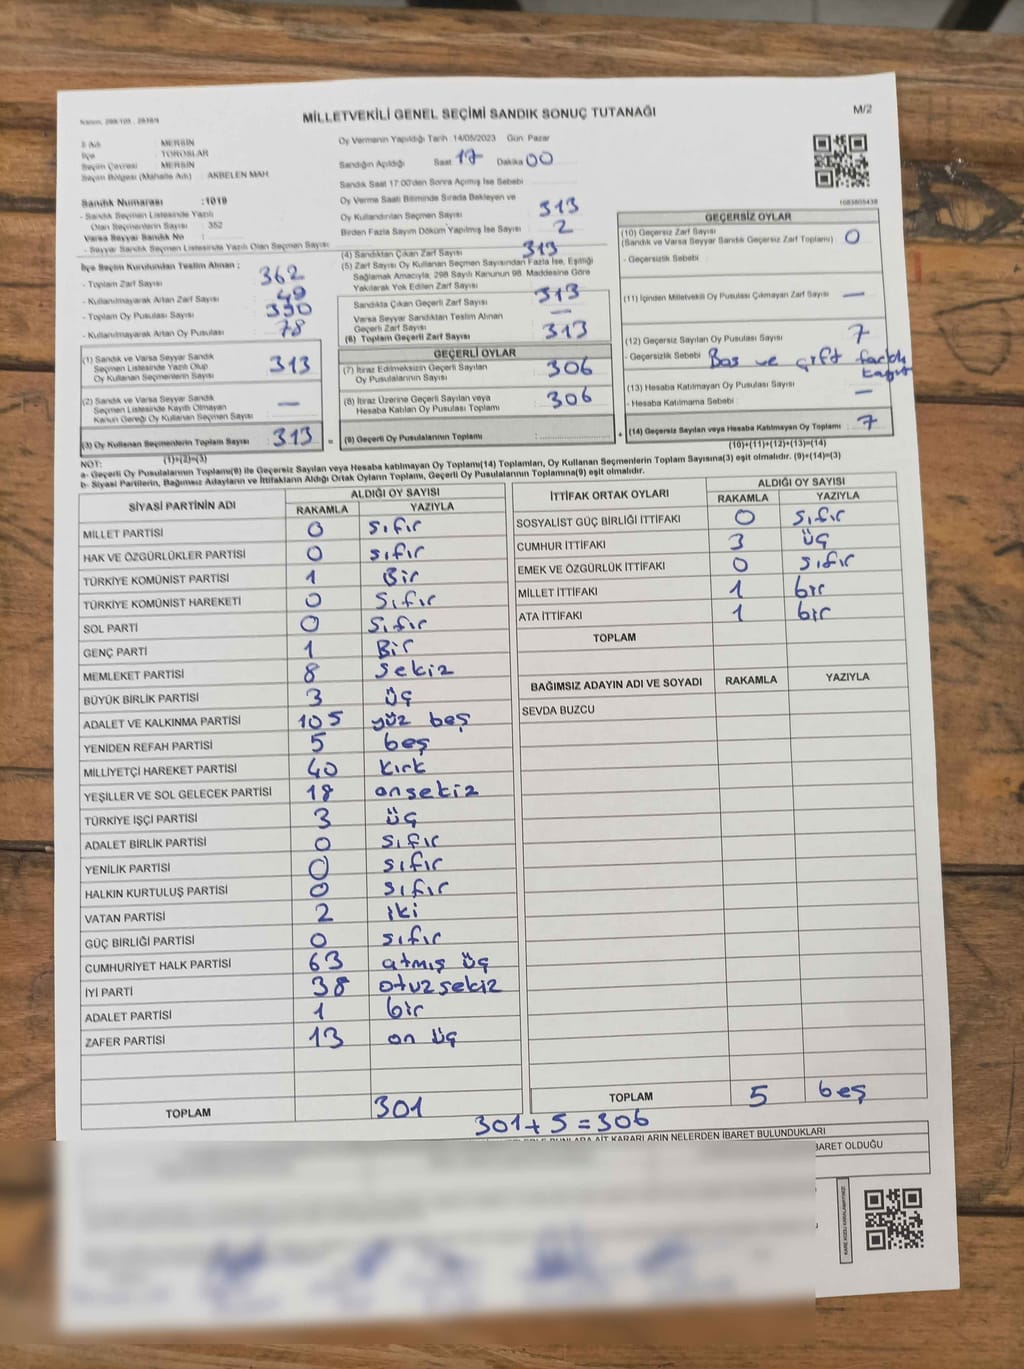 MİLLETVEKİLİ GENEL SEÇİMİ SANDIK SONUÇ TUTANAĞI
M/2
İli Adı : MERSİN
İlçe : TOROSLAR
Seçim Çevresi : MERSİN
Seçim Bölgesi (Mahalle Adı) : AKBELEN MAH
Sandık Numarası :1019
- Sandık Seçmen Listesinde Yazılı
Olan Seçmenlerin Sayısı : 352
Varsa Seyyar Sandık No :
- Seyyar Sandık Seçmen Listesinde Yazılı Olan Seçmen Sayısı:
Oy Vermenin Yapıldığı Tarih 14/05/2023 Gün Pazar
Sandığın Açıldığı Saat 17 Dakika 00
Sandık Saat 17:00'den Sonra Açılmış İse Sebebi
Oy Verme Saati Bitiminde Sırada Bekleyen ve
Oy Kullandırılan Seçmen Sayısı 313
Birden Fazla Sayım Döküm Yapılmış İse Sayısı 2
İlçe Seçim Kurulundan Teslim Alınan ;
- Toplam Zarf Sayısı : 362
- Kullanılmayarak Artan Zarf Sayısı : 49
- Toplam Oy Pusulası Sayısı : 390
- Kullanılmayarak Artan Oy Pusulası : 78
(1) Sandık ve Varsa Seyyar Sandık
Seçmen Listesinde Yazılı Olup
Oy Kullanan Seçmenlerin Sayısı : 313
(2) Sandık ve Varsa Seyyar Sandık
Seçmen Listesinde Kayıtlı Olmayan
Kanun Gereği Oy Kullanan Seçmen Sayısı : —
(3) Oy Kullanan Seçmenlerin Toplam Sayısı : 313
(1)+(2)=(3)
(4) Sandıktan Çıkan Zarf Sayısı : 313
(5) Zarf Sayısı Oy Kullanan Seçmen Sayısından Fazla İse, Eşitliği
Sağlamak Amacıyla, 298 Sayılı Kanunun 98. Maddesine Göre
Yakılarak Yok Edilen Zarf Sayısı :
Sandıkta Çıkan Geçerli Zarf Sayısı 313
Varsa Seyyar Sandıktan Teslim Alınan
Geçerli Zarf Sayısı : —
(6) Toplam Geçerli Zarf Sayısı : 313
GEÇERLİ OYLAR
(7) İtiraz Edilmeksizin Geçerli Sayılan
Oy Pusulalarının Sayısı : 306
(8) İtiraz Üzerine Geçerli Sayılan veya
Hesaba Katılan Oy Pusulası Toplamı : 306
= (9) Geçerli Oy Pusulalarının Toplamı :
1083805438
GEÇERSİZ OYLAR
(10) Geçersiz Zarf Sayısı
(Sandık ve Varsa Seyyar Sandık Geçersiz Zarf Toplamı) : 0
- Geçersizlik Sebebi :
(11) İçinden Milletvekili Oy Pusulası Çıkmayan Zarf Sayısı : —
(12) Geçersiz Sayılan Oy Pusulası Sayısı : 7
- Geçersizlik Sebebi : Boş ve çift farklı
kağıt
(13) Hesaba Katılmayan Oy Pusulası Sayısı : —
- Hesaba Katılmama Sebebi :
+ (14) Geçersiz Sayılan veya Hesaba Katılmayan Oy Toplamı : 7
(10)+(11)+(12)+(13)=(14)
NOT:
a- Geçerli Oy Pusulalarının Toplamı(9) ile Geçersiz Sayılan veya Hesaba katılmayan Oy Toplamı(14) Toplamları, Oy Kullanan Seçmenlerin Toplam Sayısına(3) eşit olmalıdır. (9)+(14)=(3)
b- Siyasi Partilerin, Bağımsız Adayların ve İttifakların Aldığı Ortak Oyların Toplamı, Geçerli Oy Pusulalarının Toplamına(9) eşit olmalıdır.
SİYASİ PARTİNİN ADI ALDIĞI OY SAYISI
RAKAMLA YAZIYLA
MİLLET PARTİSİ 0 sıfır
HAK VE ÖZGÜRLÜKLER PARTİSİ 0 sıfır
TÜRKİYE KOMÜNİST PARTİSİ 1 Bir
TÜRKİYE KOMÜNİST HAREKETİ 0 Sıfır
SOL PARTİ 0 Sıfır
GENÇ PARTİ 1 Bir
MEMLEKET PARTİSİ 8 sekiz
BÜYÜK BİRLİK PARTİSİ 3 üç
ADALET VE KALKINMA PARTİSİ 105 yüz beş
YENİDEN REFAH PARTİSİ 5 beş
MİLLİYETÇİ HAREKET PARTİSİ 40 kırk
YEŞİLLER VE SOL GELECEK PARTİSİ 18 onsekiz
TÜRKİYE İŞÇİ PARTİSİ 3 üç
ADALET BİRLİK PARTİSİ 0 sıfır
YENİLİK PARTİSİ 0 sıfır
HALKIN KURTULUŞ PARTİSİ 0 sıfır
VATAN PARTİSİ 2 iki
GÜÇ BİRLİĞİ PARTİSİ 0 sıfır
CUMHURİYET HALK PARTİSİ 63 atmış üç
İYİ PARTİ 38 otuzsekiz
ADALET PARTİSİ 1 bir
ZAFER PARTİSİ 13 on üç
TOPLAM 301
İTTİFAK ORTAK OYLARI ALDIĞI OY SAYISI
RAKAMLA YAZIYLA
SOSYALİST GÜÇ BİRLİĞİ İTTİFAKI 0 sıfır
CUMHUR İTTİFAKI 3 üç
EMEK VE ÖZGÜRLÜK İTTİFAKI 0 sıfır
MİLLET İTTİFAKI 1 bir
ATA İTTİFAKI 1 bir
TOPLAM
BAĞIMSIZ ADAYIN ADI VE SOYADI RAKAMLA YAZIYLA
SEVDA BUZCU
TOPLAM 5 beş
301+5=306
KARARLARIN NELERDEN İBARET BULUNDUKLARI
İBARET OLDUĞU